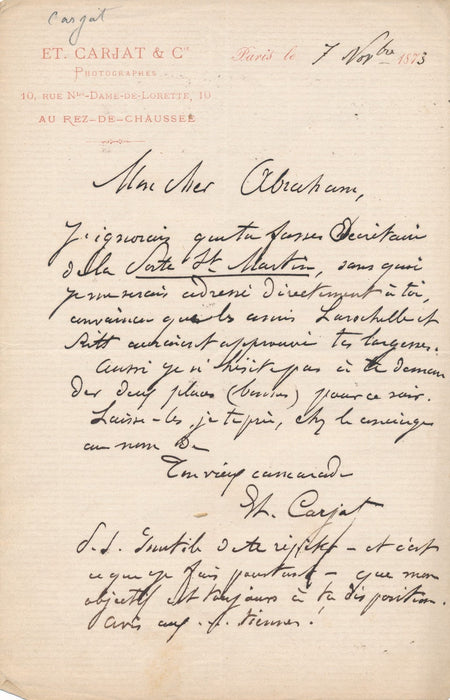 Carjat
ET. CARJAT & Cie
PHOTOGRAPHES
10, RUE Ntre-DAME-DE-LORETTE, 10
AU REZ-DE-CHAUSSÉE
Paris le 7 Novbre 1873
Mon cher Abraham,
J'ignorais que tu fusses Secrétaire
de la Porte St. Martin, sans quoi
je me serais adressé directement à toi,
convaincu que les amis Larochelle et
Ritt auraient approuvé tes largesses.
Aussi je n'hésite pas à te deman
der deux places (bonnes) pour ce soir.
Laisse-les, je te prie, chez le concierge
au nom de
Ton vieux camarade
Et. Carjat
P.S. Inutile de te répéter - et c'est
ce que je fais pourtant - que mon
objectif est toujours à ta disposition.
Avis aux tiennes!